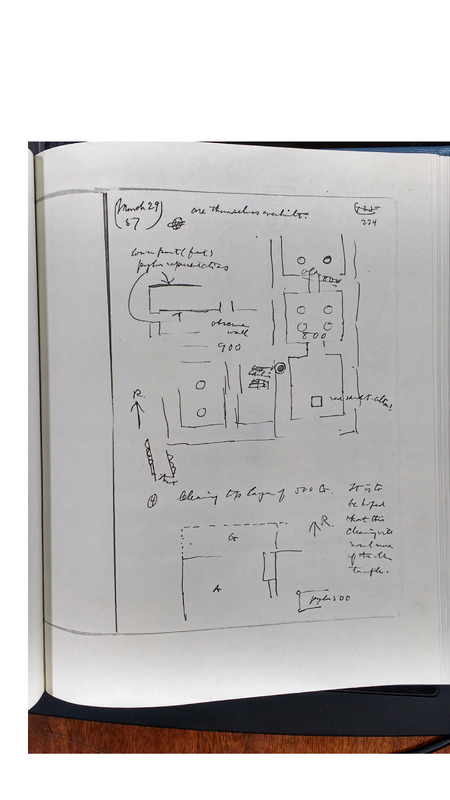 (March 29
57)
are themselves
224
lower part (feet)
pylon representations
obscure
wall
900
800
earlier
red sandst. altar
R.
④ Clearing top layer of 500 G. It is to
be hoped
that this
clearing will
reveal more
of the
temple.
R.
G
A
pylon 500